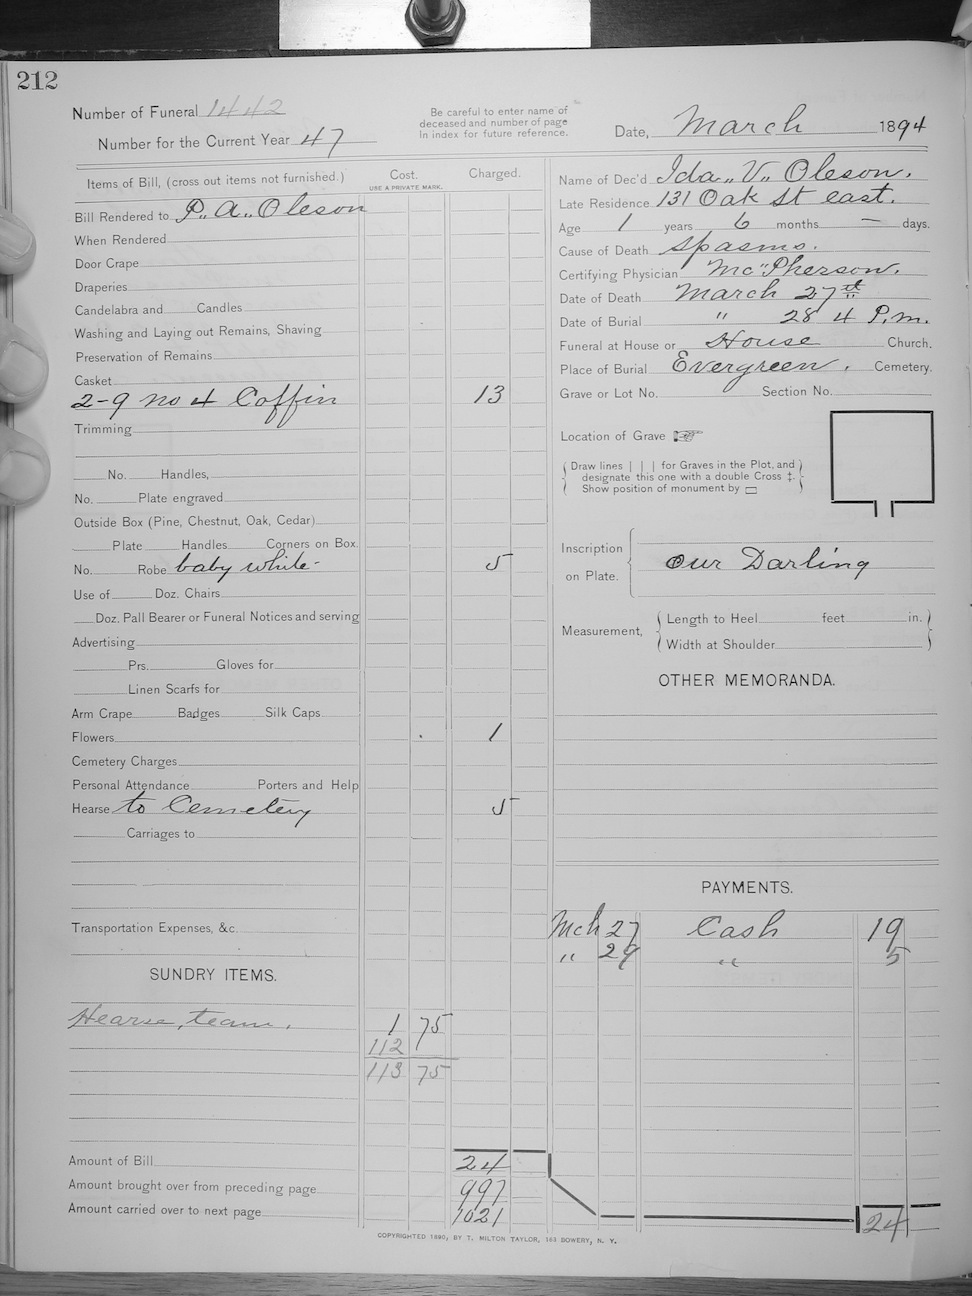 212
Number of Funeral 1442
Be careful to enter name of
deceased and number of page
In index for future reference.
Number for the Current Year 47
Date, March 1894
Items of Bill, (cross out items not furnished.)
Cost.
USE A PRIVATE MARK.
Charged.
Bill Rendered to P.. A.. Oleson
When Rendered
Door Crape
Draperies
Candelabra and Candles
Washing and Laying out Remains, Shaving
Preservation of Remains
Casket
2-9 no 4 Coffin 13
Trimming
No. Handles,
No. Plate engraved
Outside Box (Pine, Chestnut, Oak, Cedar)
Plate Handles Corners on Box.
No. Robe baby white- 5
Use of Doz. Chairs
Doz. Pall Bearer or Funeral Notices and serving
Advertising
Prs. Gloves for
Linen Scarfs for
Arm Crape Badges Silk Caps
Flowers 1
Cemetery Charges
Personal Attendance Porters and Help
Hearse to Cemetery 5
Carriages to
Transportation Expenses, &c.
SUNDRY ITEMS.
Hearse, team. 1 75
112
113 75
Amount of Bill 24
Amount brought over from preceding page 997
Amount carried over to next page 1021
Name of Dec'd Ida.. V.. Oleson.
Late Residence 131 Oak St east.
Age 1 years 6 months — days.
Cause of Death Spasms.
Certifying Physician Mc"Pherson.
Date of Death March 27
Date of Burial " 28 4 P.m.
Funeral at House or House Church.
Place of Burial Evergreen. Cemetery.
Grave or Lot No. Section No.
Location of Grave ☞
Draw lines | | | for Graves in the Plot, and
designate this one with a double Cross ‡.
Show position of monument by ▭
Inscription
on Plate.
Our Darling
Measurement,
Length to Heel feet in.
Width at Shoulder
OTHER MEMORANDA.
PAYMENTS.
Mch 27 Cash 19
" 29 " 5
24
COPYRIGHTED 1890, BY T. MILTON TAYLOR, 161 BOWERY, N. Y.